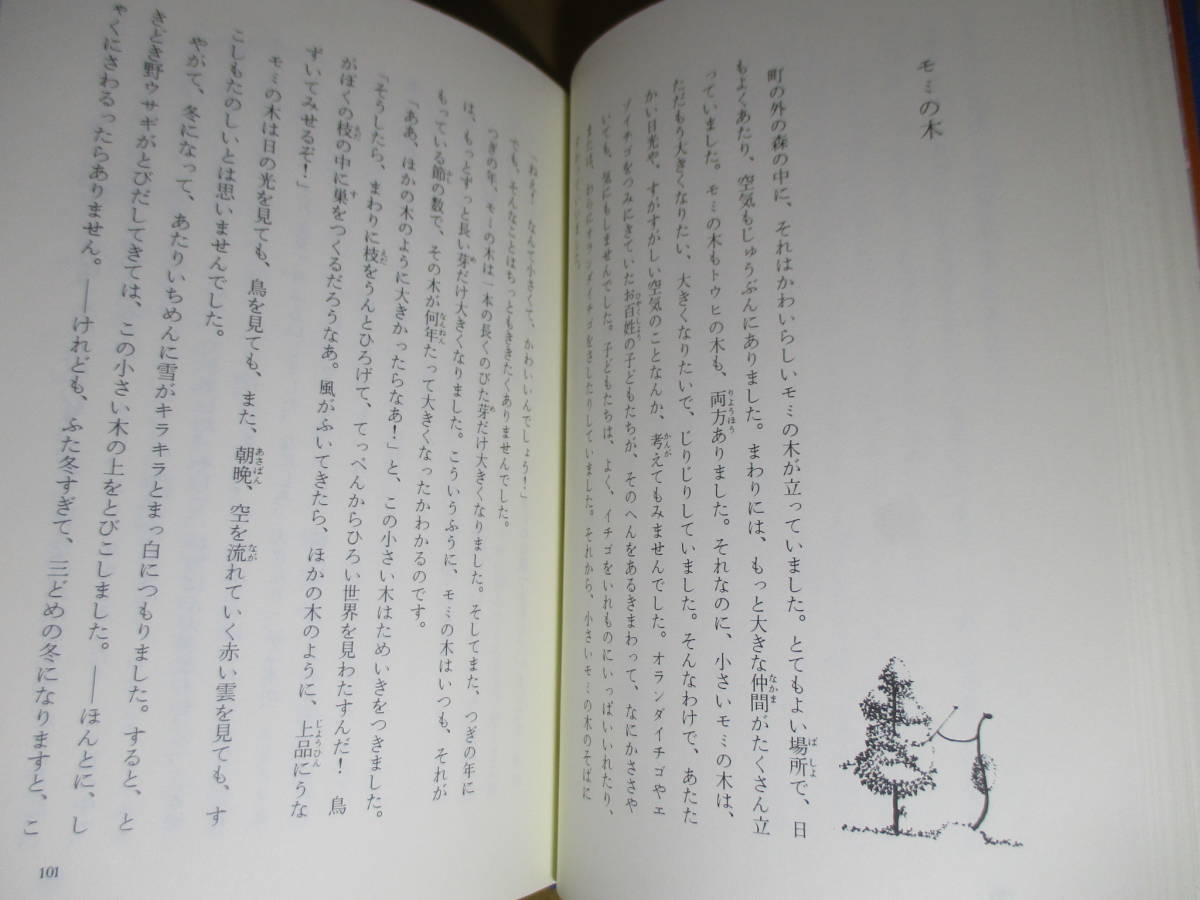 モミの木
町の外の森の中に、それはかわいらしいモミの木が立っていました。とてもよい場所で、日
もよくあたり、空気もじゅうぶんにありました。まわりには、もっと大きな仲間がたくさん立
っていました。モミの木もトウヒの木も、両方ありました。それなのに、小さいモミの木は、
ただもう大きくなりたい、大きくなりたいで、じりじりしていました。そんなわけで、あたた
かい日光や、すがすがしい空気のことなんか、考えてもみませんでした。オランダイチゴやエ
ゾイチゴをつみにきていたお百姓の子どもたちが、そのへんをあるきまわって、なにかささや
いても、気にもしませんでした。子どもたちは、よく、イチゴをいれものにいっぱいいれたり、
または、わらにオランダイチゴをさしたりしていました。それから、小さいモミの木のそばに
「ねえ！　なんて小さくて、かわいいんでしょう！」
でも、そんなことはちっともききたくありませんでした。
つぎの年、モミの木は一本の長くのびた芽だけ大きくなりました。そしてまた、つぎの年に
は、もっとずっと長い芽だけ大きくなりました。こういうふうに、モミの木はいつも、それが
もっている節の数で、その木が何年たって大きくなったかわかるのです。
「ああ、ほかの木のように大きかったらなあ！」と、この小さい木はためいきをつきました。
「そうしたら、まわりに枝をうんとひろげて、てっぺんからひろい世界を見わたすんだ！　鳥
がぼくの枝の中に巣をつくるだろうなあ。風がふいてきたら、ほかの木のように、上品にうな
ずいてみせるぞ！」
モミの木は日の光を見ても、鳥を見ても、また、朝晩、空を流れていく赤い雲を見ても、す
こしもたのしいとは思いませんでした。
やがて、冬になって、あたりいちめんに雪がキラキラとまっ白につもりました。すると、と
きどき野ウサギがとびだしてきては、この小さい木の上をとびこしました。――ほんとに、し
ゃくにさわるったらありません。――けれども、ふた冬すぎて、三どめの冬になりますと、こ
101